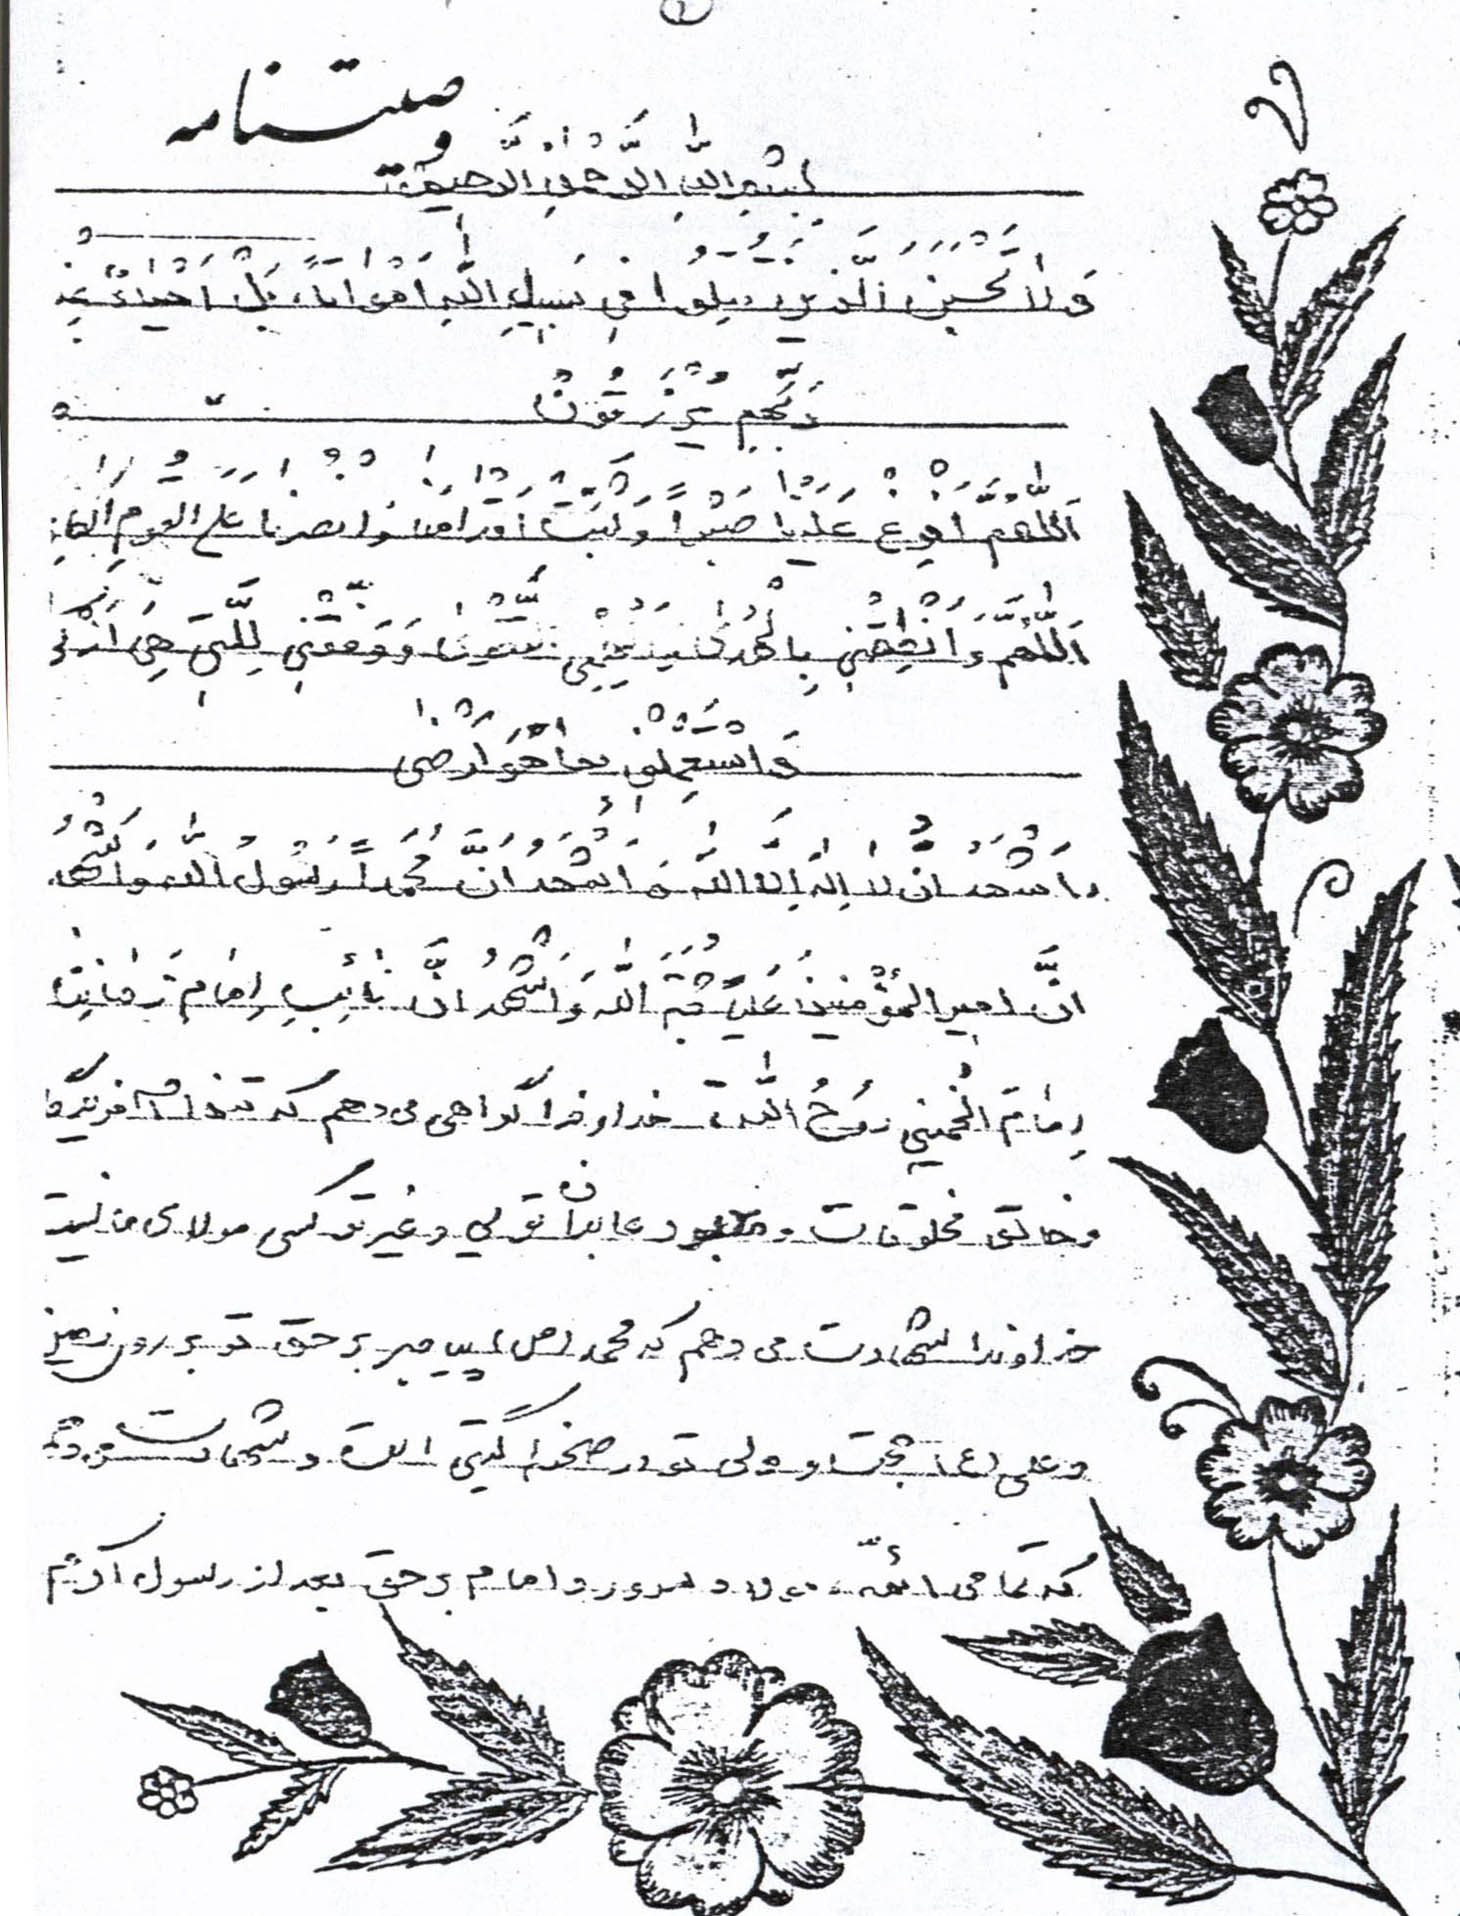 ۱
وصیتنامه
بِسْمِ اللَّهِ الرَّحْمٰنِ الرَّحیم
وَلاٰ تَحْسَبَنَّ الَّذینَ قُتِلُوا فی سَبیلِ اللّٰهِ اَمْوٰاتاً بَلْ اَحْیٰاءٌ عِنْدَ
رَبِّهِم یُرْزَقُونَ
اَللّٰهُمَّ اَفرِغ عَلَیْنٰا صَبْراً وَ ثَبِّتْ اَقدٰامَنٰا وَانصُرنٰا عَلَی القَومِ الکافِرین
اَللّٰهُمَّ وَ اَنْطِقْنی بِالْهُدیٰ وَ اَلْهِمْنی التَّقْویٰ وَ وَفِّقْنی لِلَّتی هِیَ اَزْکیٰ
وَ اسْتَعْمِلْنی بِمٰا هُوَ اَرْضیٰ
وَ اَشْهَدُ اَنْ لاٰ اِلٰهَ اِلَّا اللّٰه وَ اَشْهَدُ اَنَّ مُحَمَّداً رَسُولُ اللّٰه وَ اَشْهَدُ
اَنَّ امیرالمُؤْمِنینَ عَلیّاً حُجَّةُ اللّٰه وَ اَشْهَدُ اَنَّ نائِبِ اِمٰامِ زَمٰانِنٰا
اِمٰامَ الْخُمینی رُوحُ اللّٰه خداوندا گواهی می‌دهم که تنها آفریدگار
و خالق مخلوقات و معبود عابدان توئی و غیر تو کسی مولای ما نیست
خداوندا شهادت می دهم که محمد (ص) پیامبر بر حق تو بر روی زمین
و علی (ع) حجت و ولی تو در صحنه گیتی است و شهادت می‌دهم
که تمامی ائمه و سرور و امام بر حق بعد از رسول اکرم